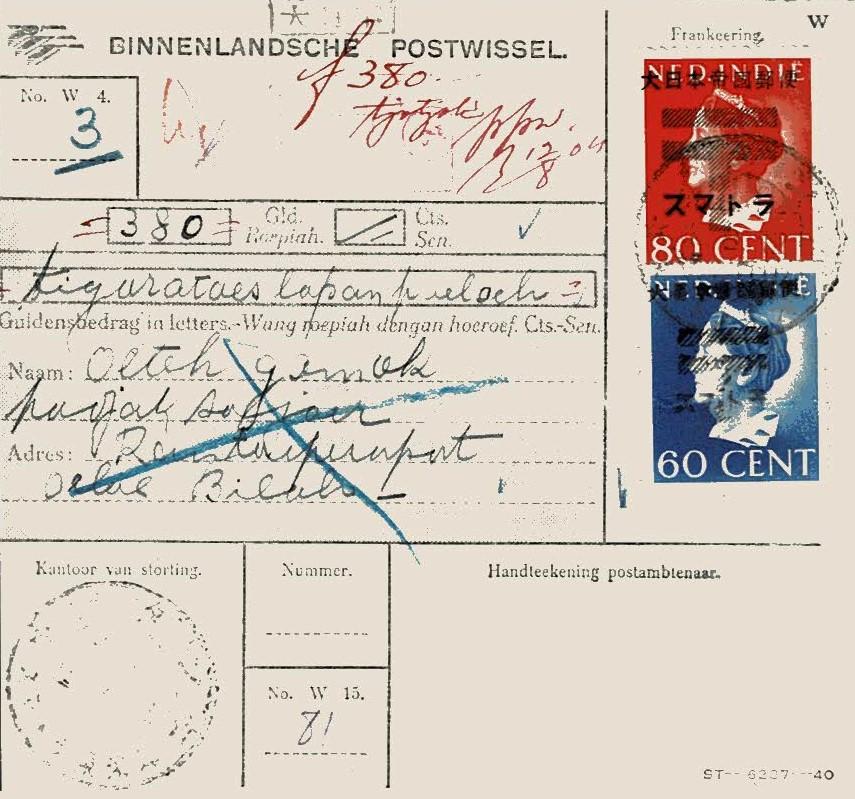 W
BINNENLANDSCHE POSTWISSEL.
Frankeering.
f 380.
No. W 4.
3
NED. INDIË
大日本帝国郵便
スマトラ
80 CENT
380
Gld.
Roepiah.
Cts.
Sen.
tigaratoes lapan poeloeh
Guldensbedrag in letters.-Wang roepiah dengan hoeroef. Cts.-Sen.
NED. INDIË
大日本帝国郵便
スマトラ
60 CENT
Naam: Oeteh gemok
padjak
Adres: Rantauperapat
Bilah
Kantoor van storting.
Nummer.
Handteekening postambtenaar.
No. W 15.
81
ST-- 6237---40